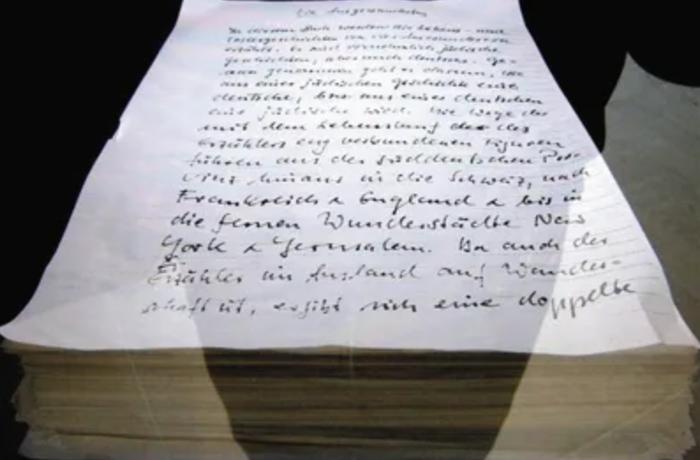 Die Ausgewanderten
In diesem Buch werden die Lebens- und
Leidensgeschichten von vier Auswanderern
erzählt. Es sind vornehmlich jüdische
Geschichten, aber auch deutsche. Ge-
nau genommen geht es darum, wie
aus einer jüdischen Geschichte eine
deutsche, bzw aus einer deutschen
eine jüdische wird. Die Wege der
mit dem Lebenslauf des
Erzählers eng verbundenen Figuren
führen aus der süddeutschen Pro-
vinz hinaus in die Schweiz, nach
Frankreich & England & bis in
die fernen Wunderstädte New
York & Jerusalem. Da auch der
Erzähler im Ausland auf Wander-
schaft ist, ergibt sich eine doppelte